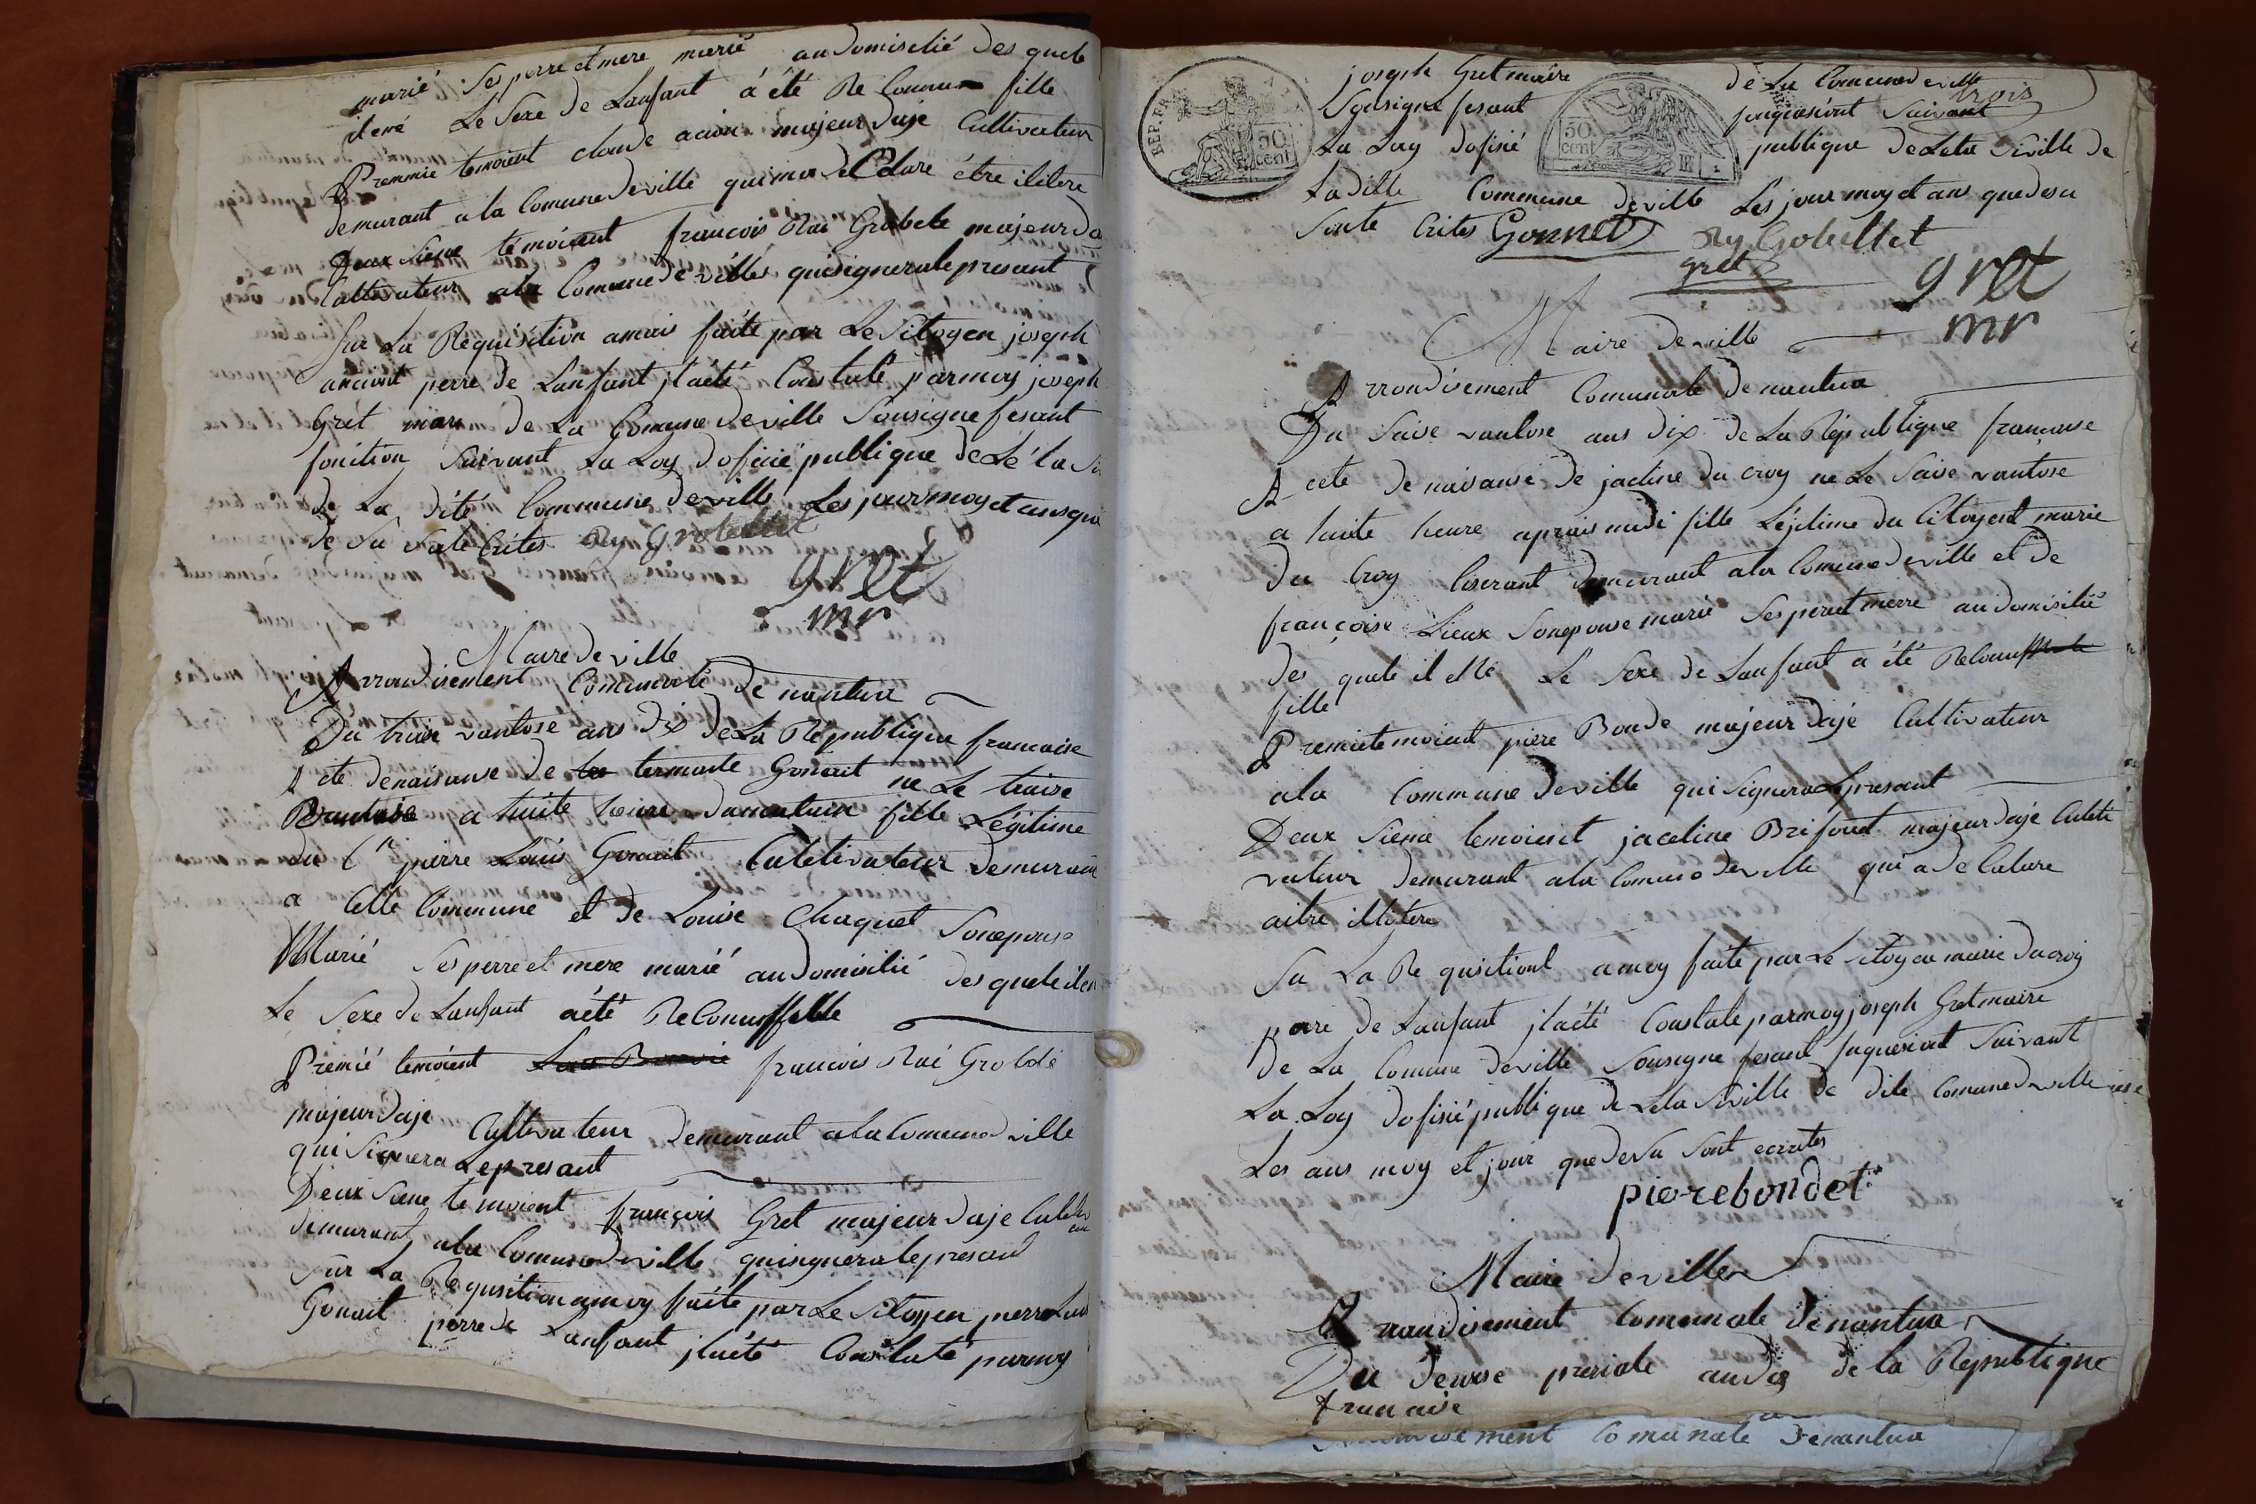 marié ses perre et mere marié au domicilié des quele
il e né Le Sexe de Lanfant á été Re Connu fille
Premmie temoient claude majeur daje Cultivateur
demurant a la Comune de ville qui ma de Clare étre ilitere
Deux sieme temóient francois Rai Grobele majeur da
Cultivateur a la Comune de ville qui signerale presant
Sur La Requisition amois faite par Le Sitoyen joseph
ancient perre de Lanfant jl aété Constate parmoy joseph
Grét maire de La Comune de ville Sousigne fesant
fonition Suivant La Loy dofisié publique de Lé ta si
de La dité Commune de ville Les jour moy et ans que
de Su Sate Crites Rey Grobellet
gret
mr
Maire de ville
Arrondisement Comunale de nantua
Du traise vantose ans dix de La Republique francaise
A cte denaisanse de termaule Gonait ne Le traise
a huite heure du matein fille Légitime
du Cn pierre Louis Gonait Cultivateur demuran
a Cette Commune et de Louise Chaquet Sonepouse
Marié Ses perre et mere marié au domisilié des quele il en
Le Sexe de Lanfant aété Reconuffille
Premié temóient francois Rai Grobelé
majeur daje Cultivateur demurant a la Comune d ville
qui Signera Le presant
Deux sieme temoient françois Gret majeur daje Culetiv
demurant a la Comune d ville quisignerale presand
Sur La Requsition amoy faite par Le Sitoyen perre Loui
Gonait perre de Lanfant jlaété Constaté parmoy
joseph Gret maire de La Comune de ville
trois
Sousigne fesant Suivant
La Loy dofisié publique de Leta Siville de
REP. FRA.
50 cent
50 cent
Ladille Commune de ville Les jour moy et ans que desu
Sonte Crites Gonnet Rey Gobellet
gret
gret
mr
Maire de ville
Arrondisement Comunale de nantua
Du Saise vantose ans dix de La République francaise
A cete de naisanse de jacline du croy ne Le Saise vantose
a huite heure aprais midi fille Léjitime du Citoyent marie
du Croy demeurant a la Comune de ville et de
françoise Lieux Sonepouse marié Ses perret merre au domisilié
des quele il e Né Le Sexe de Lanfant a été Reconu
fille
Premietemoient piere Bonde majeur daje Cultivateur
a la Commune de ville qui Signera Lepresant
Deux Sieme temoient jaceline Brifond majeur daje Culeti
vateur demurant a la Comune de ville qui a de Calare
aitre illitere
Su La Re quisitiont amoy faite par Le Sitoyen marie Ducroy
pere de Lanfant jlaété Constate parmoy joseph Gretmaire
de La Comune de ville Sousigne fesant Suivant
La Loy dofisié publique de Leta Siville de dite Comune d ville
Les ans moy et jour que de Su Sont ecrites
pierebondet
Maire de ville
Arrandisement Comunale de nantua
Du deuxse an dis de la Republique
francaise
ment Comunale denantua